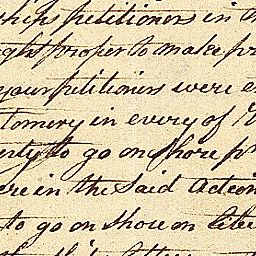 ships petitioners in
ght proper to make pr
your petitioners were e
tomery in every of
erty to go on Shore pr
ere in the Said Action
to go on shore on libe